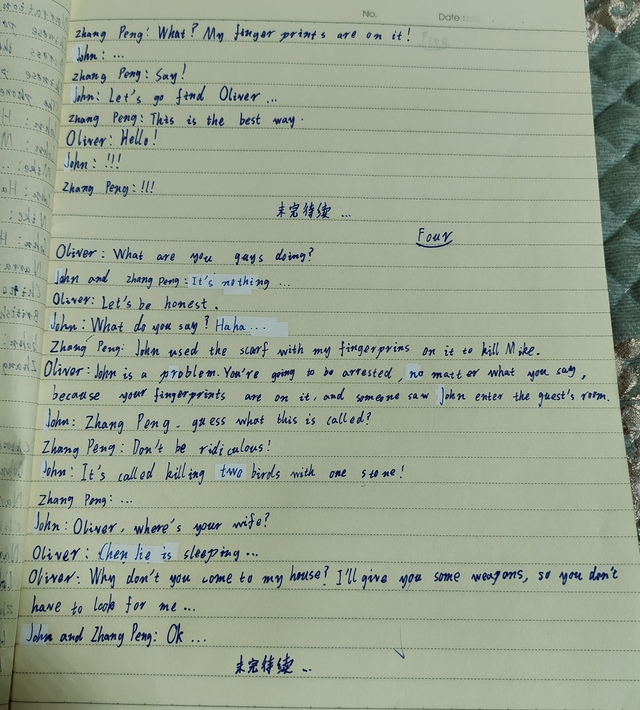 No.
Date
Zhang Peng: What? My finger prints are on it!
John: ...
Zhang Peng: Say!
John: Let's go find Oliver ...
Zhang Peng: This is the best way.
Oliver: Hello!
John: !!!
Zhang Peng: !!!
未完待续 ...
Four
Oliver: What are you guys doing?
John and Zhang Peng: It's nothing ...
Oliver: Let's be honest.
John: What do you say? Haha...
Zhang Peng: John used the scarf with my fingerprins on it to kill Mike.
Oliver: John is a problem. You're going to be arrested, no matter what you say,
because your fingerprints are on it, and someone saw John enter the guest's room.
John: Zhang Peng, guess what this is called?
Zhang Peng: Don't be ridiculous!
John: It's called killing two birds with one stone!
Zhang Peng: ...
John: Oliver, where's your wife?
Oliver: Chen Jie is sleeping ...
Oliver: Why don't you come to my house? I'll give you some weapons, so you don't
have to look for me ...
John and Zhang Peng: Ok ...
未完待续 ...